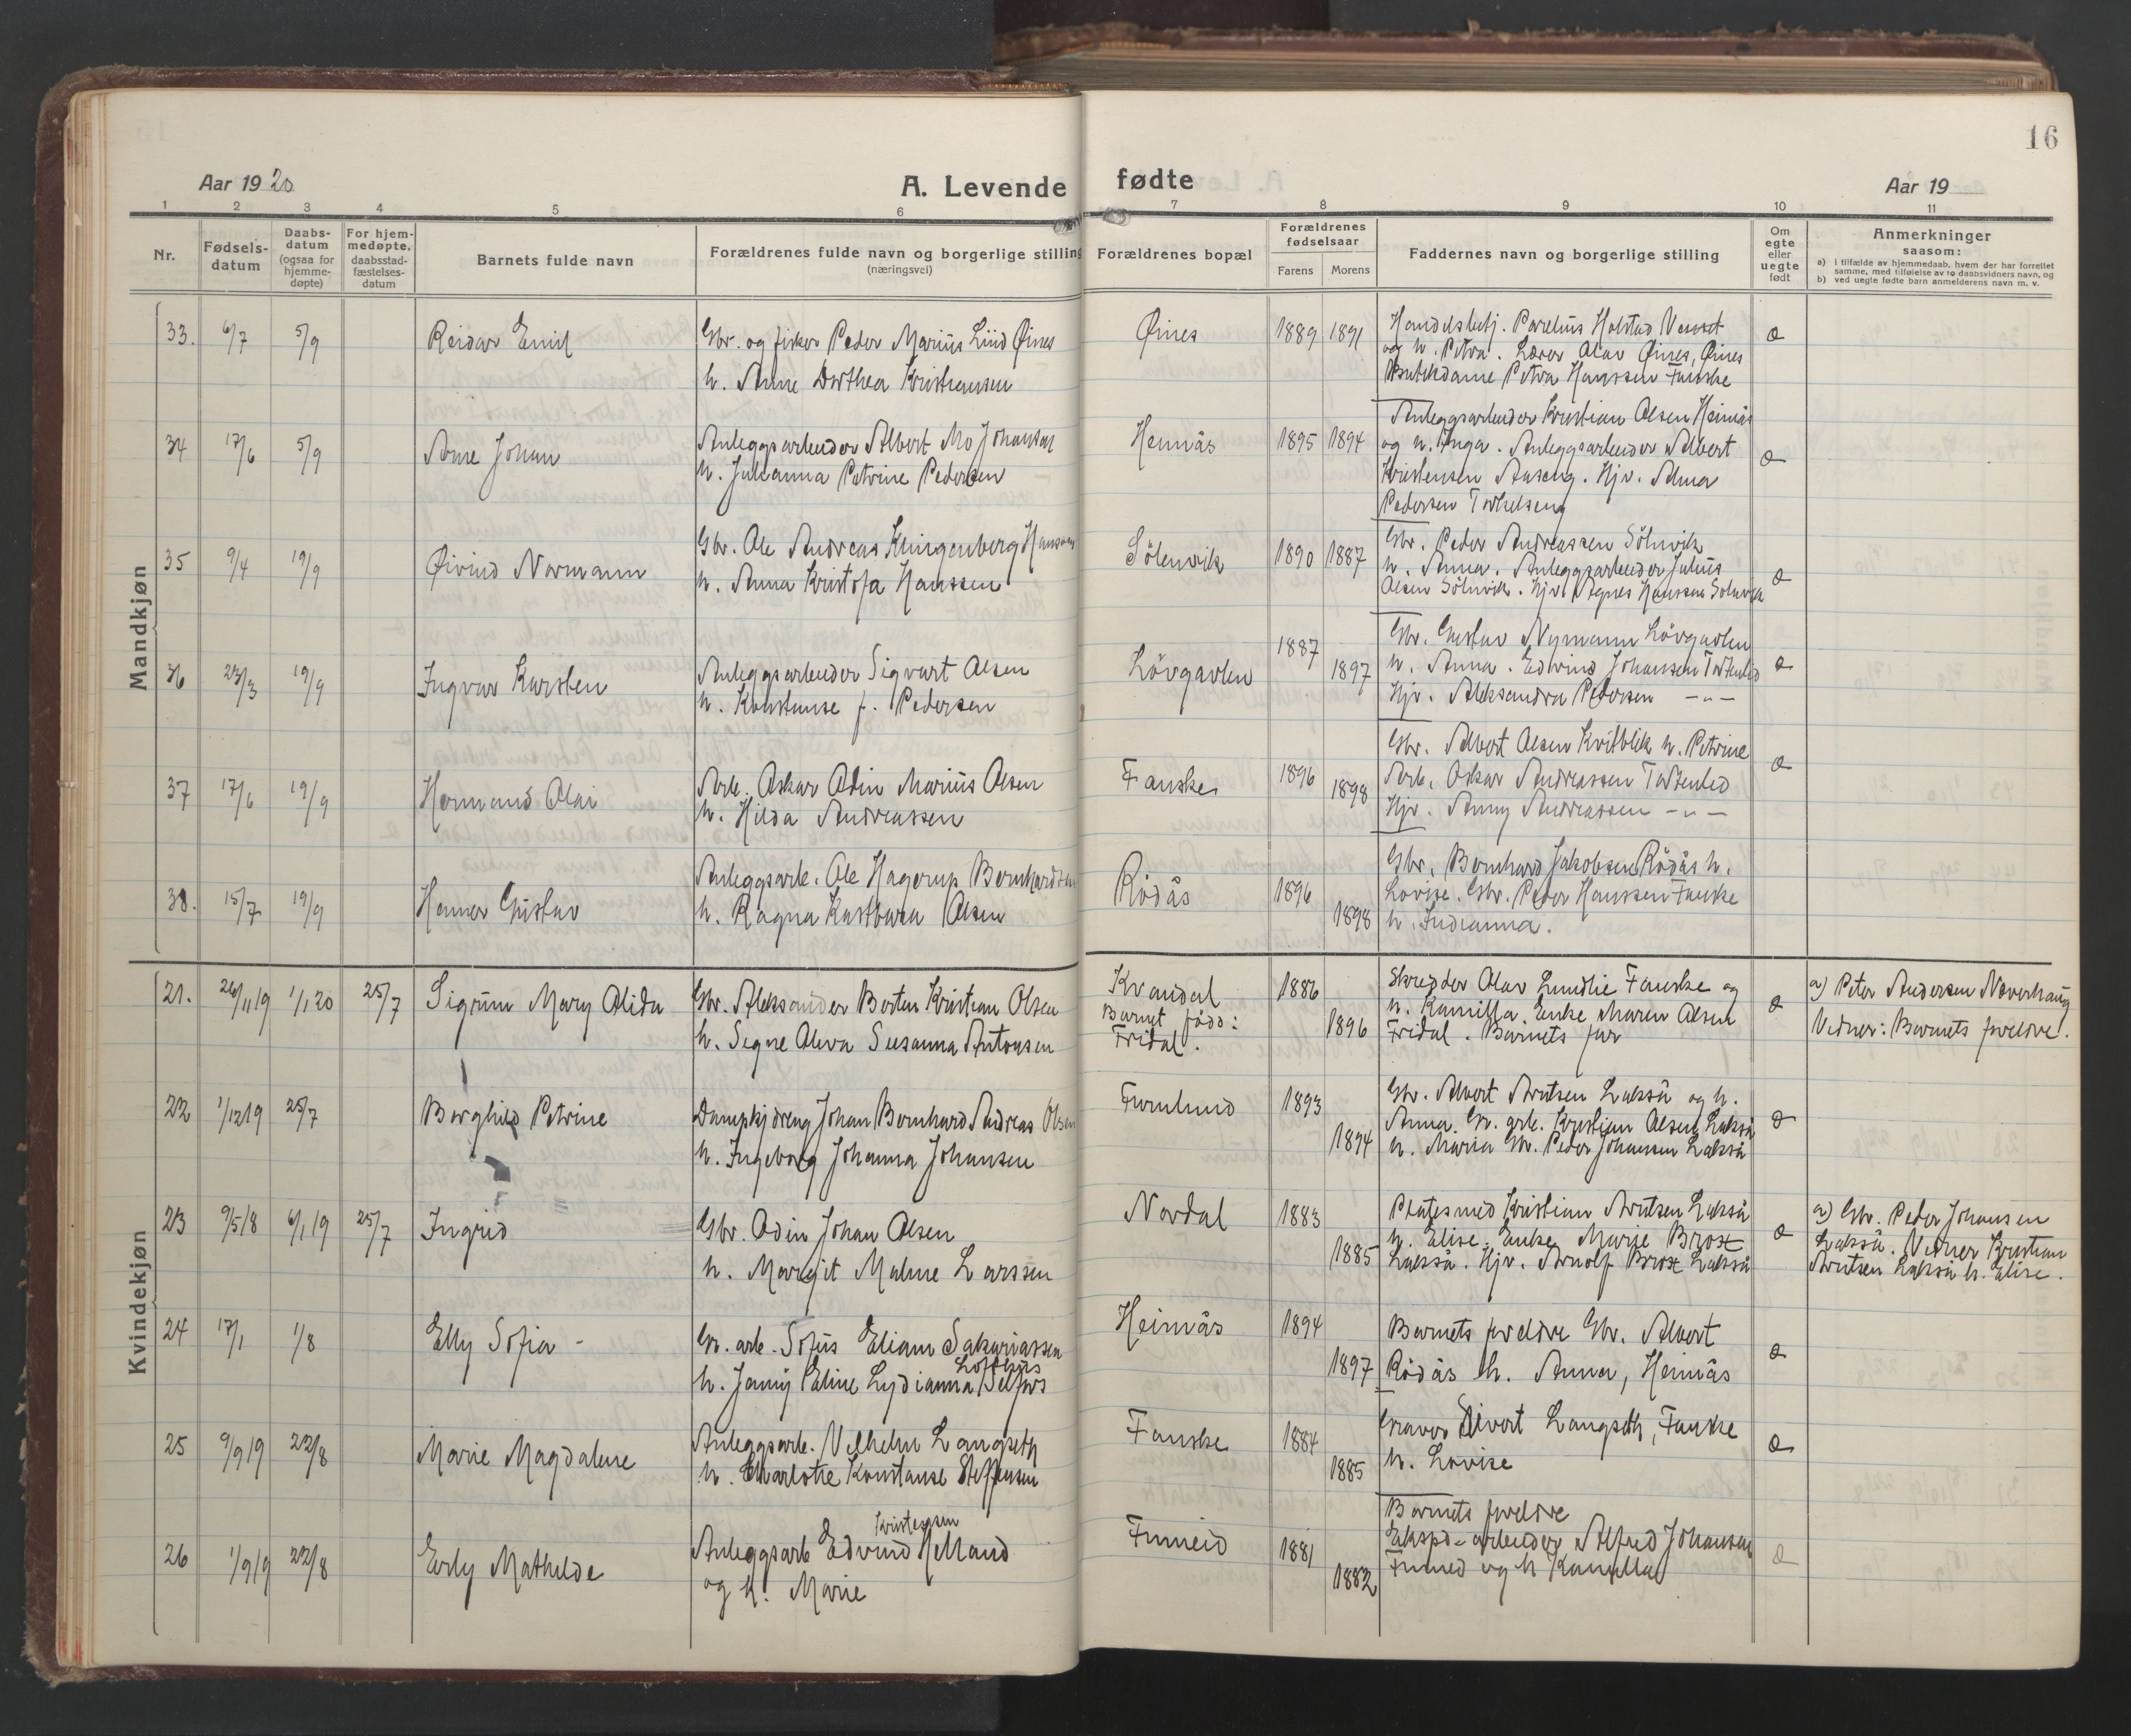 16
Aar 1920
A. Levende fødte
Aar 19
1 2 3 4 5 6 7 8 9 10 11
Nr.
Fødsels-
datum
Daabs-
datum
(ogsaa for
hjemme-
døpte)
For hjem-
medøpte,
daabsstad-
fæstelses-
datum
Barnets fulde navn
Forældrenes fulde navn og borgerlige stilling
(næringsvei)
Forældrenes bopæl
Forældrenes
fødselsaar
Farens Morens
Faddernes navn og borgerlige stilling
Om
egte
eller
uegte
født
Anmerkninger
saasom:
a) i tilfælde av hjemmedaab, hvem der har forrettet
samme, med tilføielse av to daabsvidners navn, og
b) ved uegte fødte barn anmelderens navn m. v.
Mandkjøn
33. 6/7 5/9 Reidar Emil
Gbr. og fisker Peder Marius Lund Øines
h. Anne Dorthea Kristiansen
Øines 1889 1891
Handelsbetj. Parelius Holstad
og h. Petra. Lærer Olav Øines, Øines
Butikdame Petra Hanssen Fauske
34 17/6 5/9 Arne Johan
Anleggsarbeider Albert Mo Johansen
h. Julianna Petrine Pedersen
Heimås 1895 1894
Anleggsarbeider Kristian Olsen Heimås
og h. Inga. Anleggsarbeider Albert
Kristensen Aaseng. Hjv. Alma
Pedersen
35 9/4 19/9 Øivind Normann
Gbr. Ole Andreas Klingenberg Hanssen
h. Anna Kristofa Hanssen
Sölenvik 1890 1887
Gbr. Peder Andreassen Sölnvik
h. Anna. Anleggsarbeider Julius
Olsen Sölnvik. Hjv. Agnes Hanssen Solnvik
36 23/3 19/9 Ingvar Karsten
Anleggsarbeider Sigvart Olsen
h. Konstanse f. Pedersen
Lövgavlen 1887 1897
Gbr. Gustav Nymann Lövgavlen
h. Anna. Edvind Johansen Tortenlid
Hjv. Aleksandra Pedersen - " -
37 17/6 19/9 Hermand Olai
Arb. Oskar Odin Marius Olsen
h. Hilda Andreassen
Fauske 1896 1898
Gbr. Albert Olsen Kvitblik h. Petrine
Arb. Oskar Andreassen Tortenlid
Hjv. Anny Andreassen - " -
38. 15/7 19/9 Henner Gustav
Anleggsarb. Ole Hagerup Bernhardsen
h. Ragna Kastbara Olsen
Rödås 1896 1898
Gbr. Bernhard Jakobsen Rödås h.
Lovise. Gbr. Peder Hanssen Fauske
h. Indianna.
Kvindekjøn
21. 26/11 19 1/1 20 25/7 Sigrun Mary Alida
Gbr. Aleksander Borten Kristian Olsen
h. Signe Oleva Susanna Antonsen
Kvandal
Barnet född:
Fridal.
1886 1896
Skredder Olav Lundlie Fauske og
h. Kamilla. Enke Maren Olsen
Fridal. Barnets far
a) Peter Andersen Naverhaug
Vidner: Barnets foreldre.
22 1/12 19 25/7 Borghild Petrine
Johan Bernhard Andreas Olsen
h. Ingeborg Johanna Johansen
Furulund 1893 1894
Gbr. Albert Arntsen Lakså og h.
Anna. Gr. arb. Kristian Olsen Lakså
h. Maria Gbr. Peder Johansen Lakså
23 9/5 18 6/1 19 25/7 Ingrid
Gbr. Odin Johan Olsen
h. Margit Malene Larssen
Nordal 1883 1885
Platesmed Kristian Arntsen Lakså
h. Elise. Enke Marie Brose
Lakså. Hjv. Arnolf Brose Lakså
a) Gbr. Peder Johansen
Lakså. Vidner Kristian
Arntsen Lakså h. Elise.
24 17/1 1/8 Elly Sofia -
Gr. arb. Sofus Eliam Sakariassen
h. Jenny Eline Lydianna Selfors
Heimås 1894 1897
Barnets foreldre Gbr. Albert
Rödås h. Anna, Heimås
25 9/9 19 22/8 Marie Magdalene
Anleggsarb. Vilhelm Langseth
h. Charlotte Konstanse Steffensen
Fauske 1884 1885
Graver Sivert Langseth, Fauske
h. Lovise
26 1/9 19 22/8 Evly Mathilde
Kristensen
Anleggsarb Edvind Helland
og h. Marie
Finneid 1881 1882
Barnets foreldre
Ekspd-arbeider Alfred Johansen
Finneid og h Kamilla